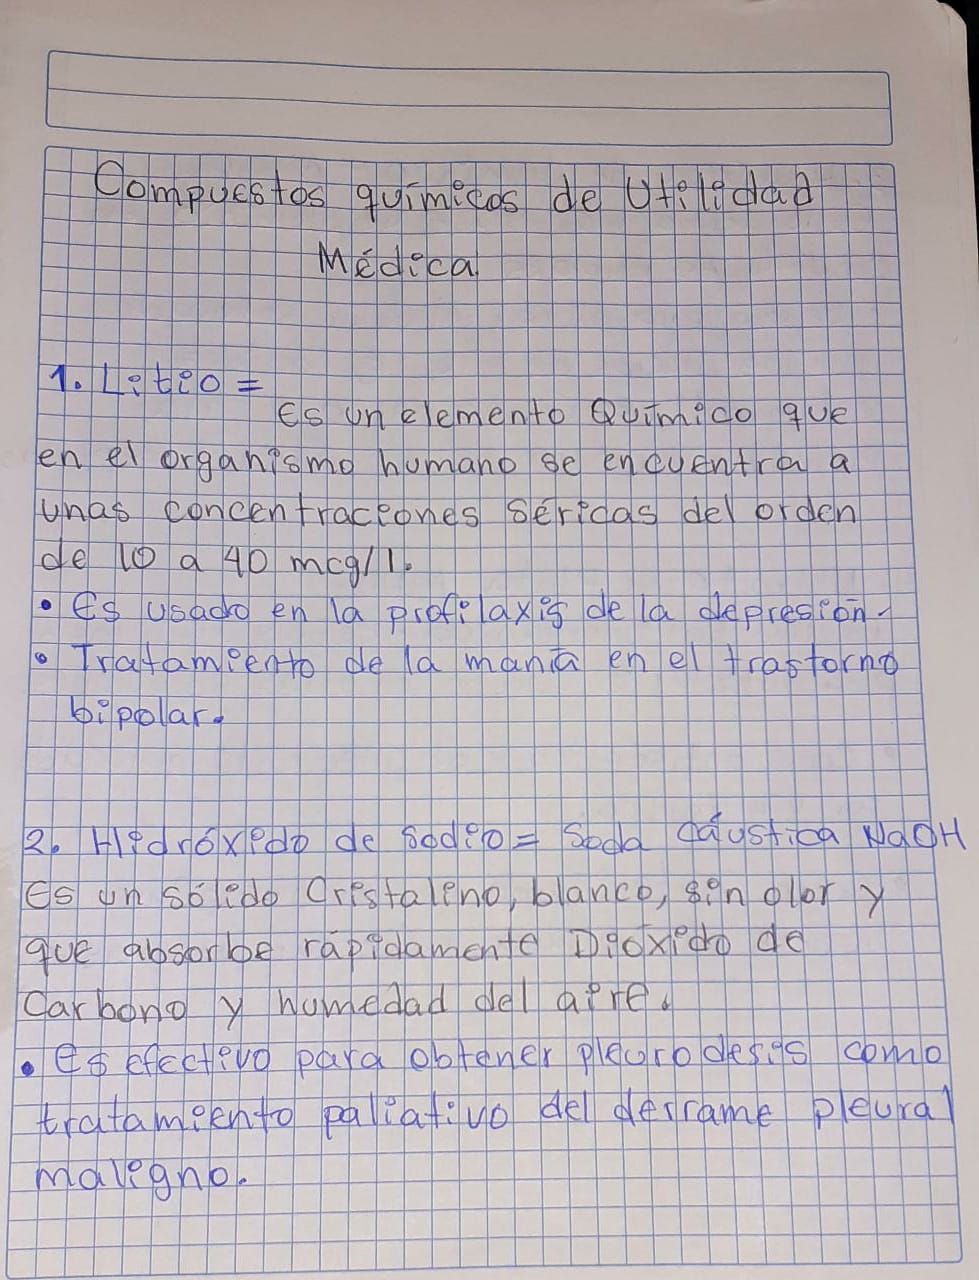 Compuestos químicos de Utilidad
Médica
1. Litio =
Es un elemento Químico que
en el organismo humano se encuentra a
unas concentraciones séricas del orden
de 10 a 40 mcg/l.
• Es usado en la profilaxis de la depresión.
• Tratamiento de la manía en el trastorno
bipolar.
2. Hidróxido de Sodio = Soda Cáustica NaOH
Es un sólido Cristalino, blanco, sin olor y
que absorbe rápidamente Dióxido de
Carbono y humedad del aire.
• Es efectivo para obtener pleurodesis como
tratamiento paliativo del derrame pleural
maligno.